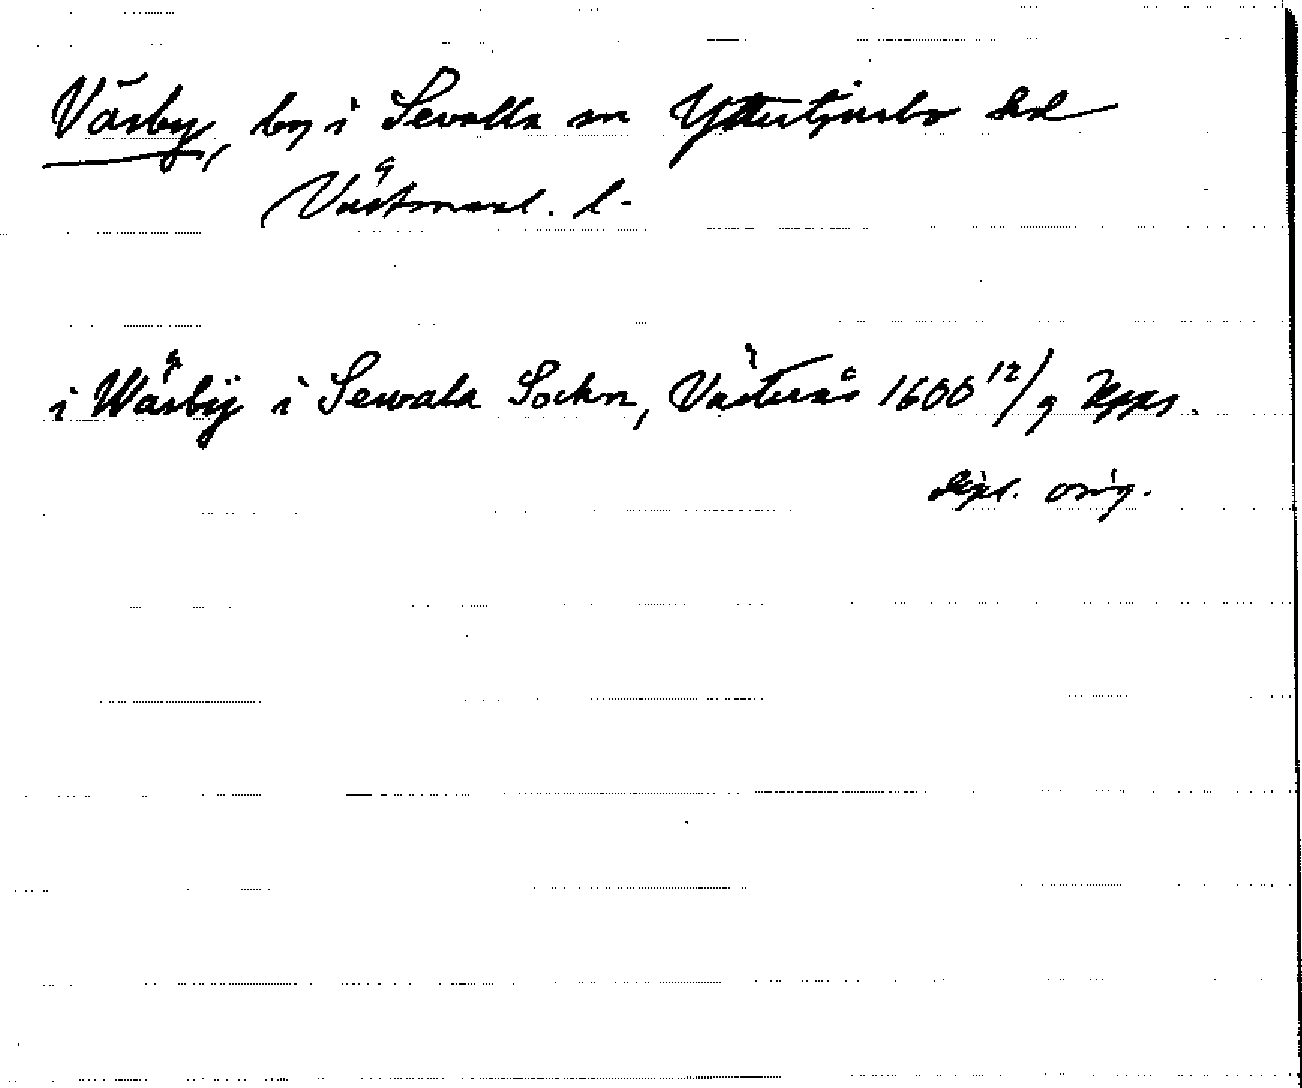 Väsby, by i Sevalla sn Yttertjurbo hd
Västmanl. l.
i Wäsbÿ i Sewala Sochn, Västerås 1600 12/9 Upps.
dipl. orig.